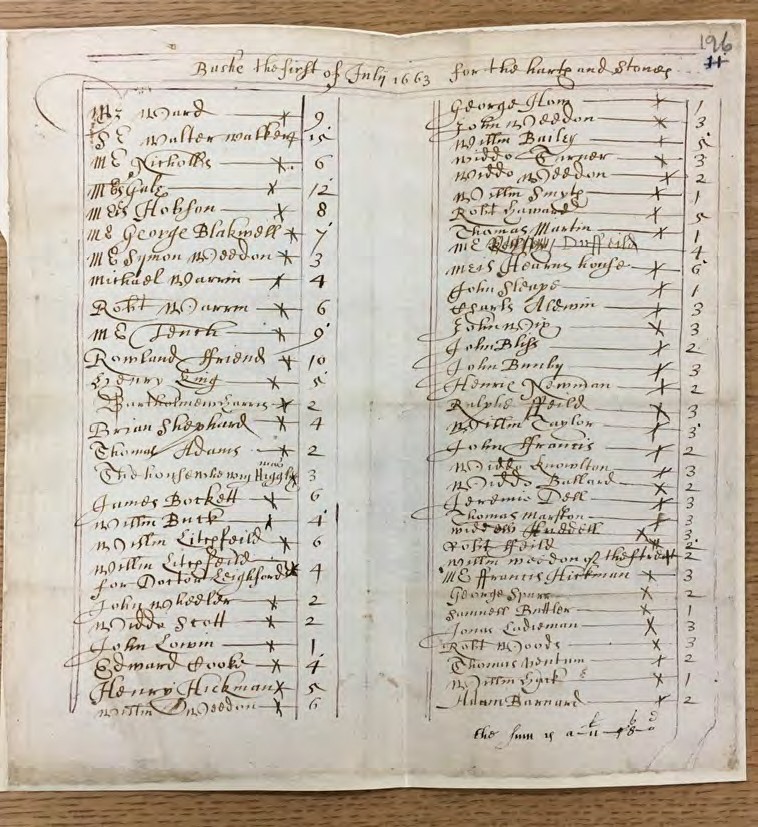 196
Bushe the first of July 1663 for the harts and Stones
Mr Ward x 9
Sr Walter walker x 15
Mr Nicholls x 6
Mrs Gale x 12
Mrs Hobson x 8
Mr George Blakwell x 7
Mr Symon Weedon x 3
Michael Warrin x 4
Robt Warrin x 6
Mr Tench x 9
Rowland ffriend x 10
Henry King x 5
Bartholmew Harris x 2
Brian Shephard x 4
Thomas Adams x 2
The house wherin Higgly x 3
James Bockett x 6
Willm Buck x 4
Willm Litchfeild x 6
Willm Litchfeild
for Doctor Leighford x 4
John Wheeler x 2
Widdo Scott x 2
John Lowin x 1
Edward Cooke x 4
Henry Hickman x 5
Willm Weedon x 6
George How x 1
John Weedon x 3
Willm Bailey x 5
Widdo Turner x 3
Widdo Weedon x 2
Willm Smyth x 1
Robt Haward x 5
Thomas Martin x 1
Mr Duffeild 4
Hearns house x 6
John Sleape x 1
Charls Aldwin x 3
John Wip x 3
John Bliss x 2
John Bunby x 3
Henrie Newman x 2
Ralphe ffeild x 3
Willm Taylor x 3
John ffrancis x 2
Widdo Knowlton x 3
Widdo Ballard x 2
Jeremie Dell x 3
Thomas Marston x 3
Widdow Huddell x 3
Robt ffeild x 2
Willm weedon of the x 2
Mr ffrancis Hickman x 3
George Spurr x 2
Samuell Butler x 1
Jonas Ladieman x 3
Robt Woods x 3
Thomas Ventum x 2
Willm x 1
Adam Barnard x 2
the sum is